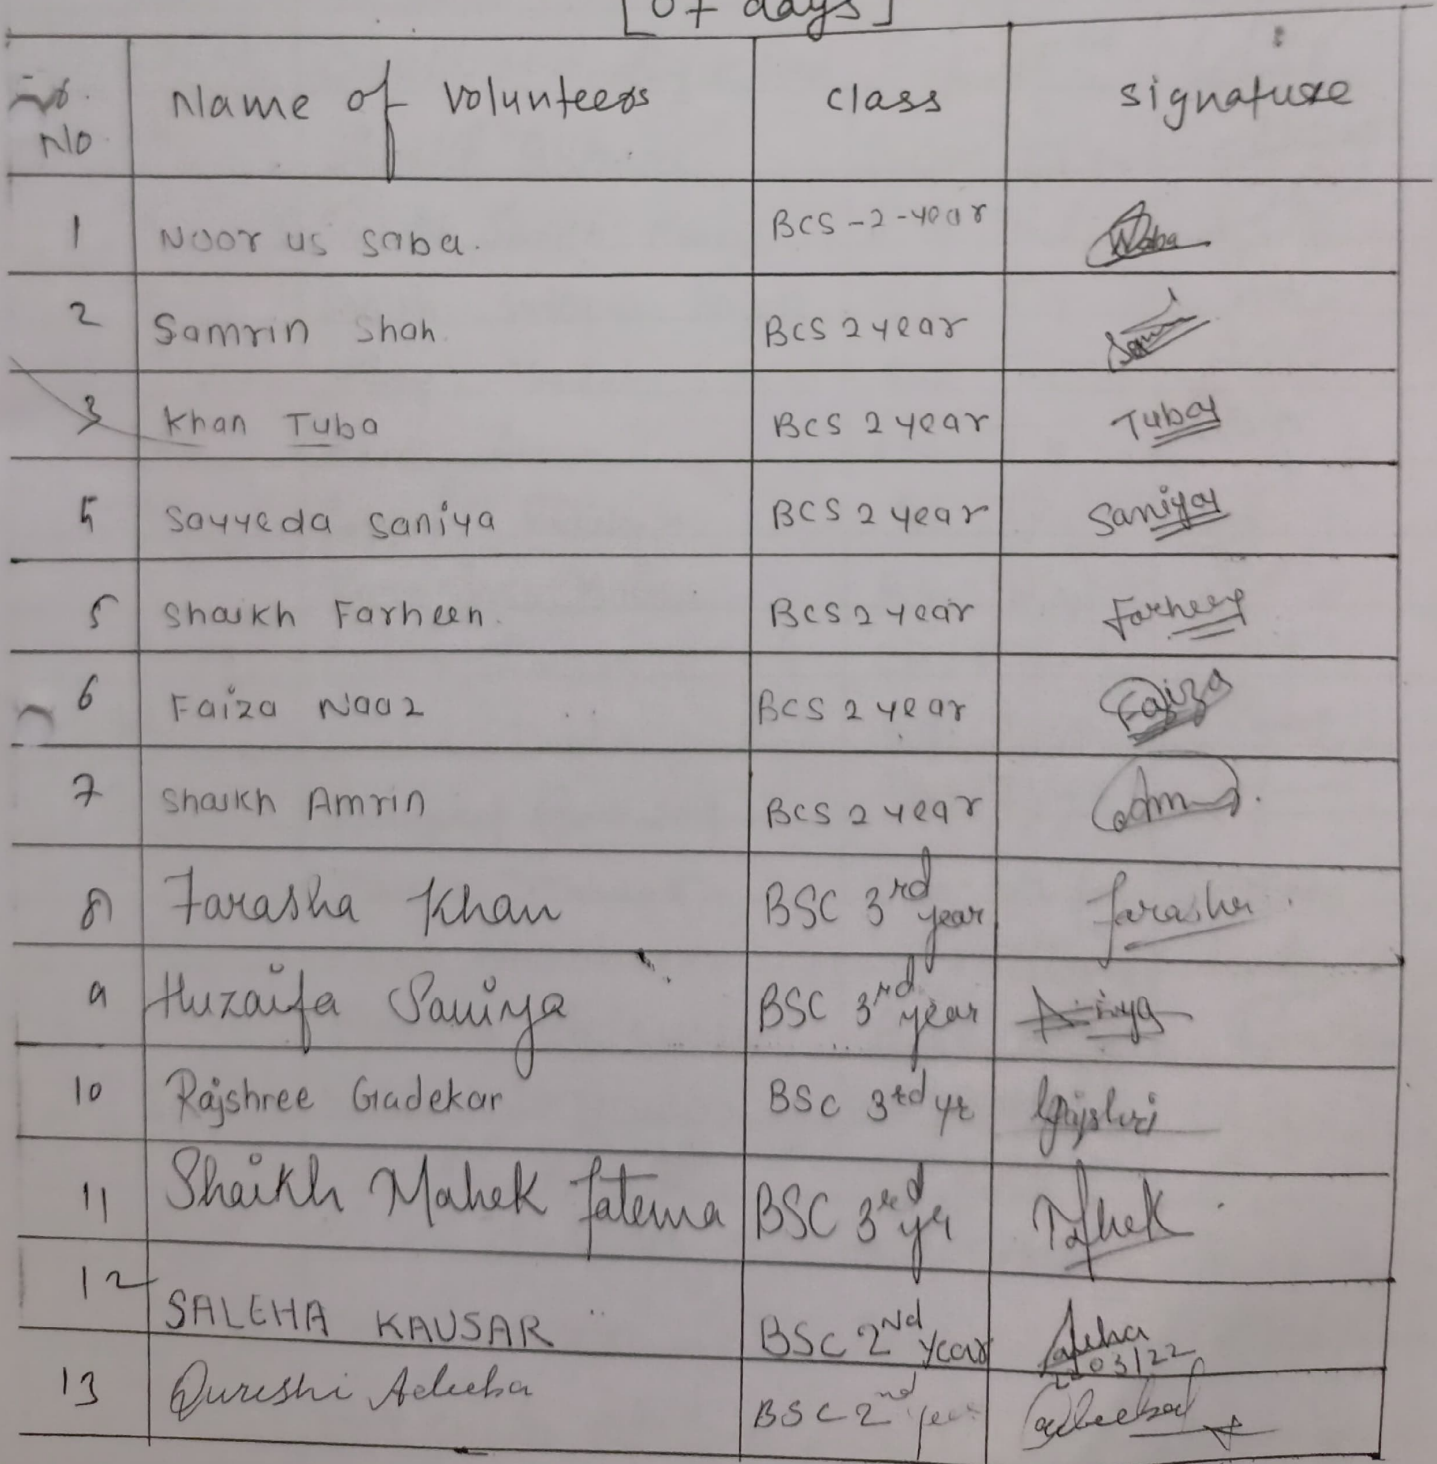 [07 days]
Sr. No Name of volunteers class signature
1 Noor us saba. BCS-2-year
2 Samrin Shah. BCS 2 year
3 Khan Tuba BCS 2 year Tuba
4 Sayyeda saniya BCS 2 year Saniya
5 Shaikh Farheen. BCS 2 year Farheen
6 Faiza Naaz BCS 2 year Faiza
7 Shaikh Amrin BCS 2 year
8 Farasha Khan BSC 3rd year farasha
9 Huzaifa Saniya BSC 3rd year
10 Rajshree Gadekar BSc 3rd yr
11 Shaikh Mahek fatema BSC 3rd yr Mahek
12 SALEHA KAUSAR BSc 2Nd year
13 Qureshi Adeeba BSC 2nd year